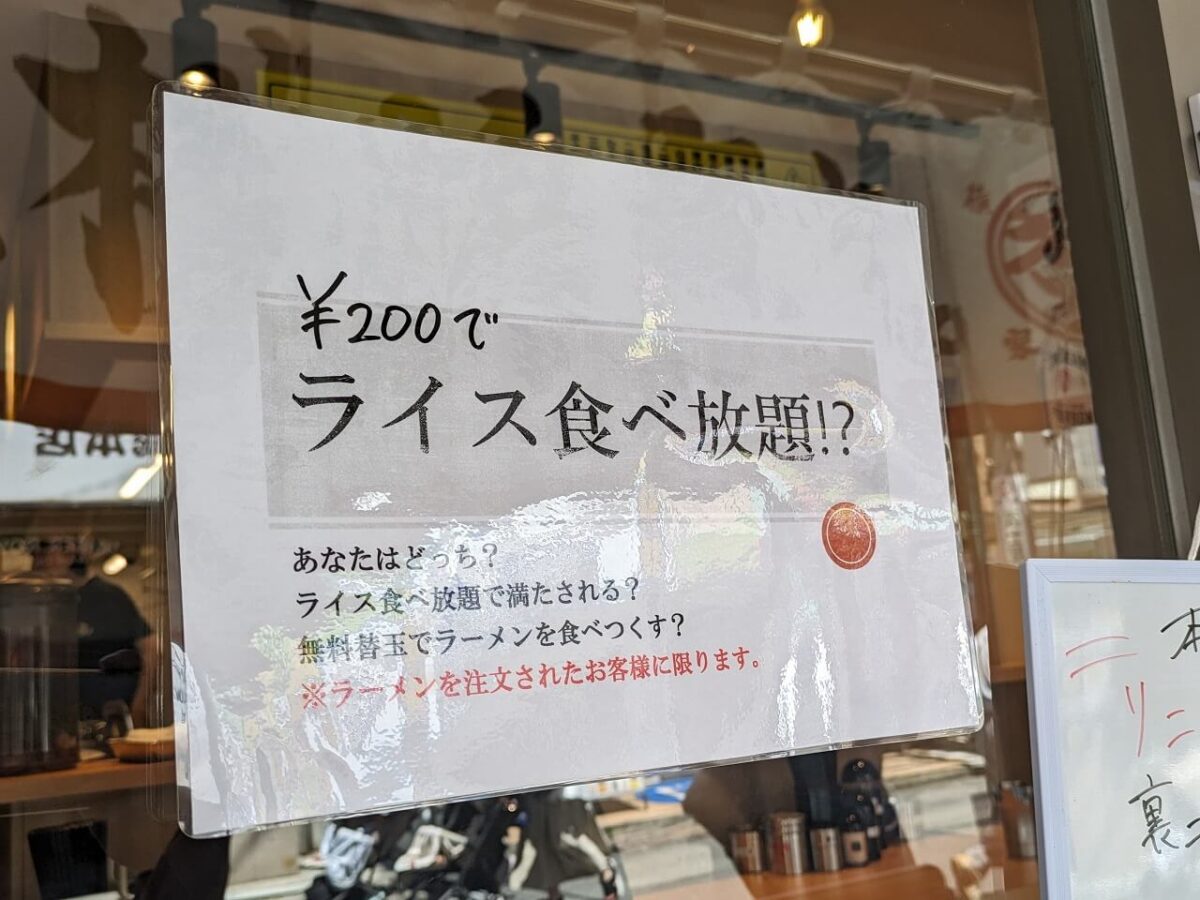 ¥200で
ライス食べ放題!?
あなたはどっち？
ライス食べ放題で満たされる？
無料替玉でラーメンを食べつくす？
※ラーメンを注文されたお客様に限ります。
本店
リニ
裏